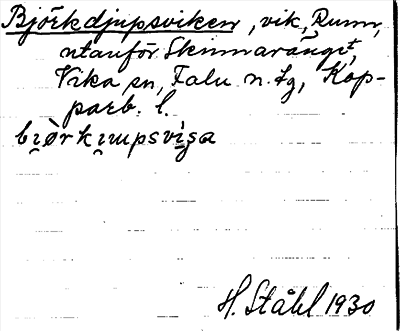 Björkdjupsviken, vik, Runn,
utanför Skinnaränget,
Vika sn, Falu n. tg, Kop-
parb. l.
bi̯òrki̯upsvi̱ga
H. Ståhl 1930